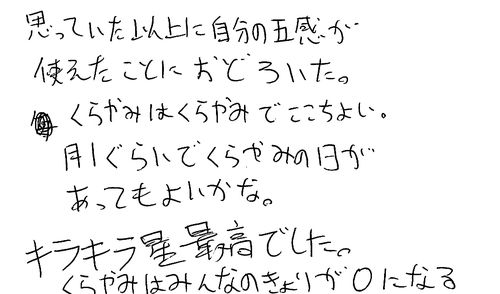 思っていた以上に自分の五感が
使えたことにおどろいた。
くらやみはくらやみでここちよい。
月1ぐらいでくらやみの日が
あってもよいかな。
キラキラ星最高でした。
くらやみはみんなのきょりが0になる